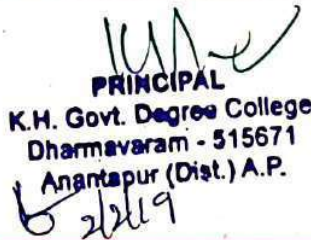 PRINCIPAL
K.H. Govt. Degree College
Dharmavaram - 515671
Anantapur (Dist.) A.P.
2/2/19